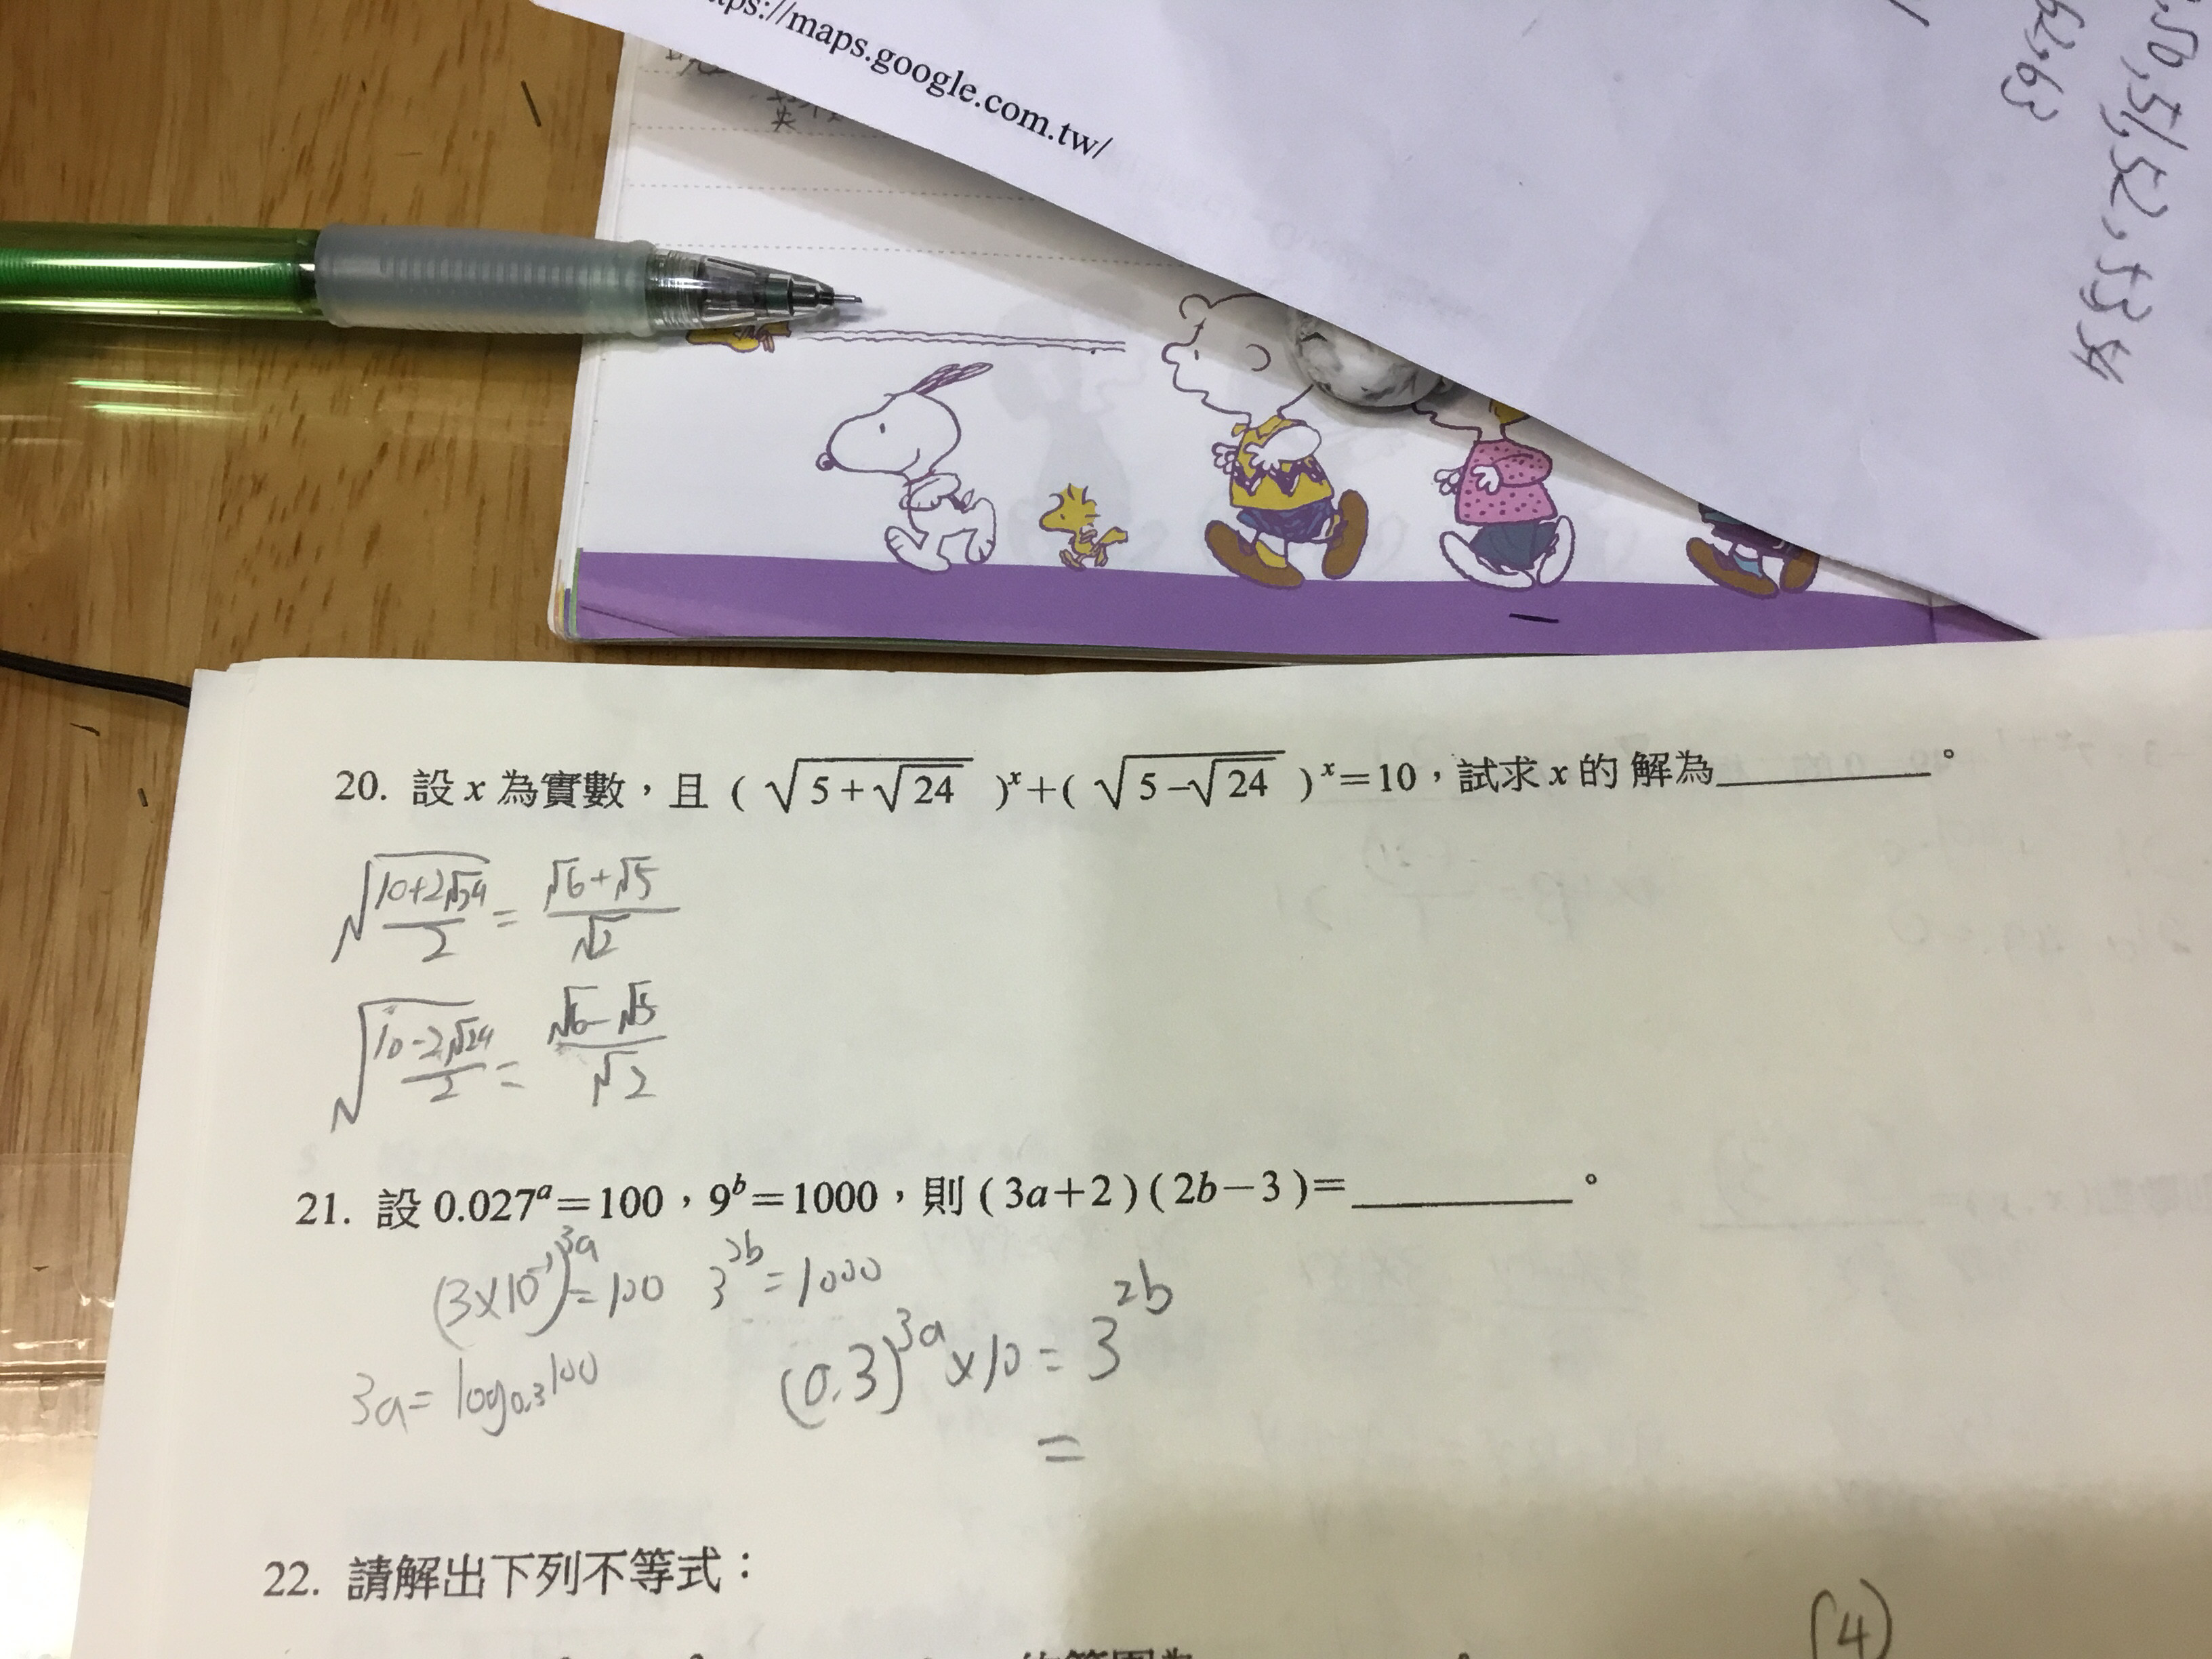 ps://maps.google.com.tw/
62,63
50,51,52,53,54
20. 設 x 為實數，且 ( √(5+√24) )^x+( √(5−√24) )^x=10，試求 x 的 解為____________。
√((10+2√24)/2) = (√6+√5)/√2
√((10-2√24)/2) = (√6-√5)/√2
21. 設 0.027^a=100，9^b=1000，則 (3a+2)(2b−3)=____________。
(3×10^-1)^3a=100 3^2b=1000
(0.3)^3a×10=3^2b
3a=log_0.3 100
=
22. 請解出下列不等式：
(4)